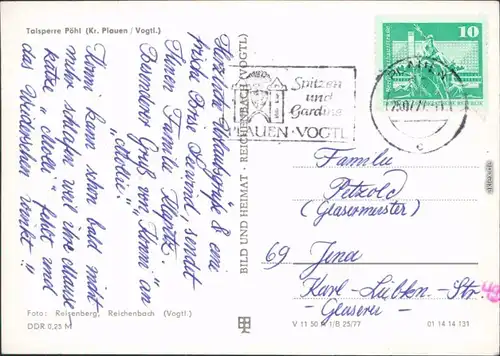 Talsperre Pöhl (Kr. Plauen / Vogtl.)
Herzliche Urlaubsgrüße & eine
frische Brise Seewind, sendet
Eurer Familie
Besonderer Gruß von "Conni" an
kann schon bald nicht
mehr schlafen weil ihre Mause-
katze fehlt und
das Wiedersehen winkt!!
Foto: Reisenberg, Reichenbach (Vogtl.)
DDR 0,25 M
BILD UND HEIMAT · REICHENBACH (VOGTL)
Spitzen
und
Gardine
PLAUEN · VOGTL
PLAUEN
c
10
Familie
Petzold
(Glasermeister)
69 Jena
Karl-Liebkn.-Str.
-Glaserei-
V 11 50 A 1/B 25/77
01 14 14 131